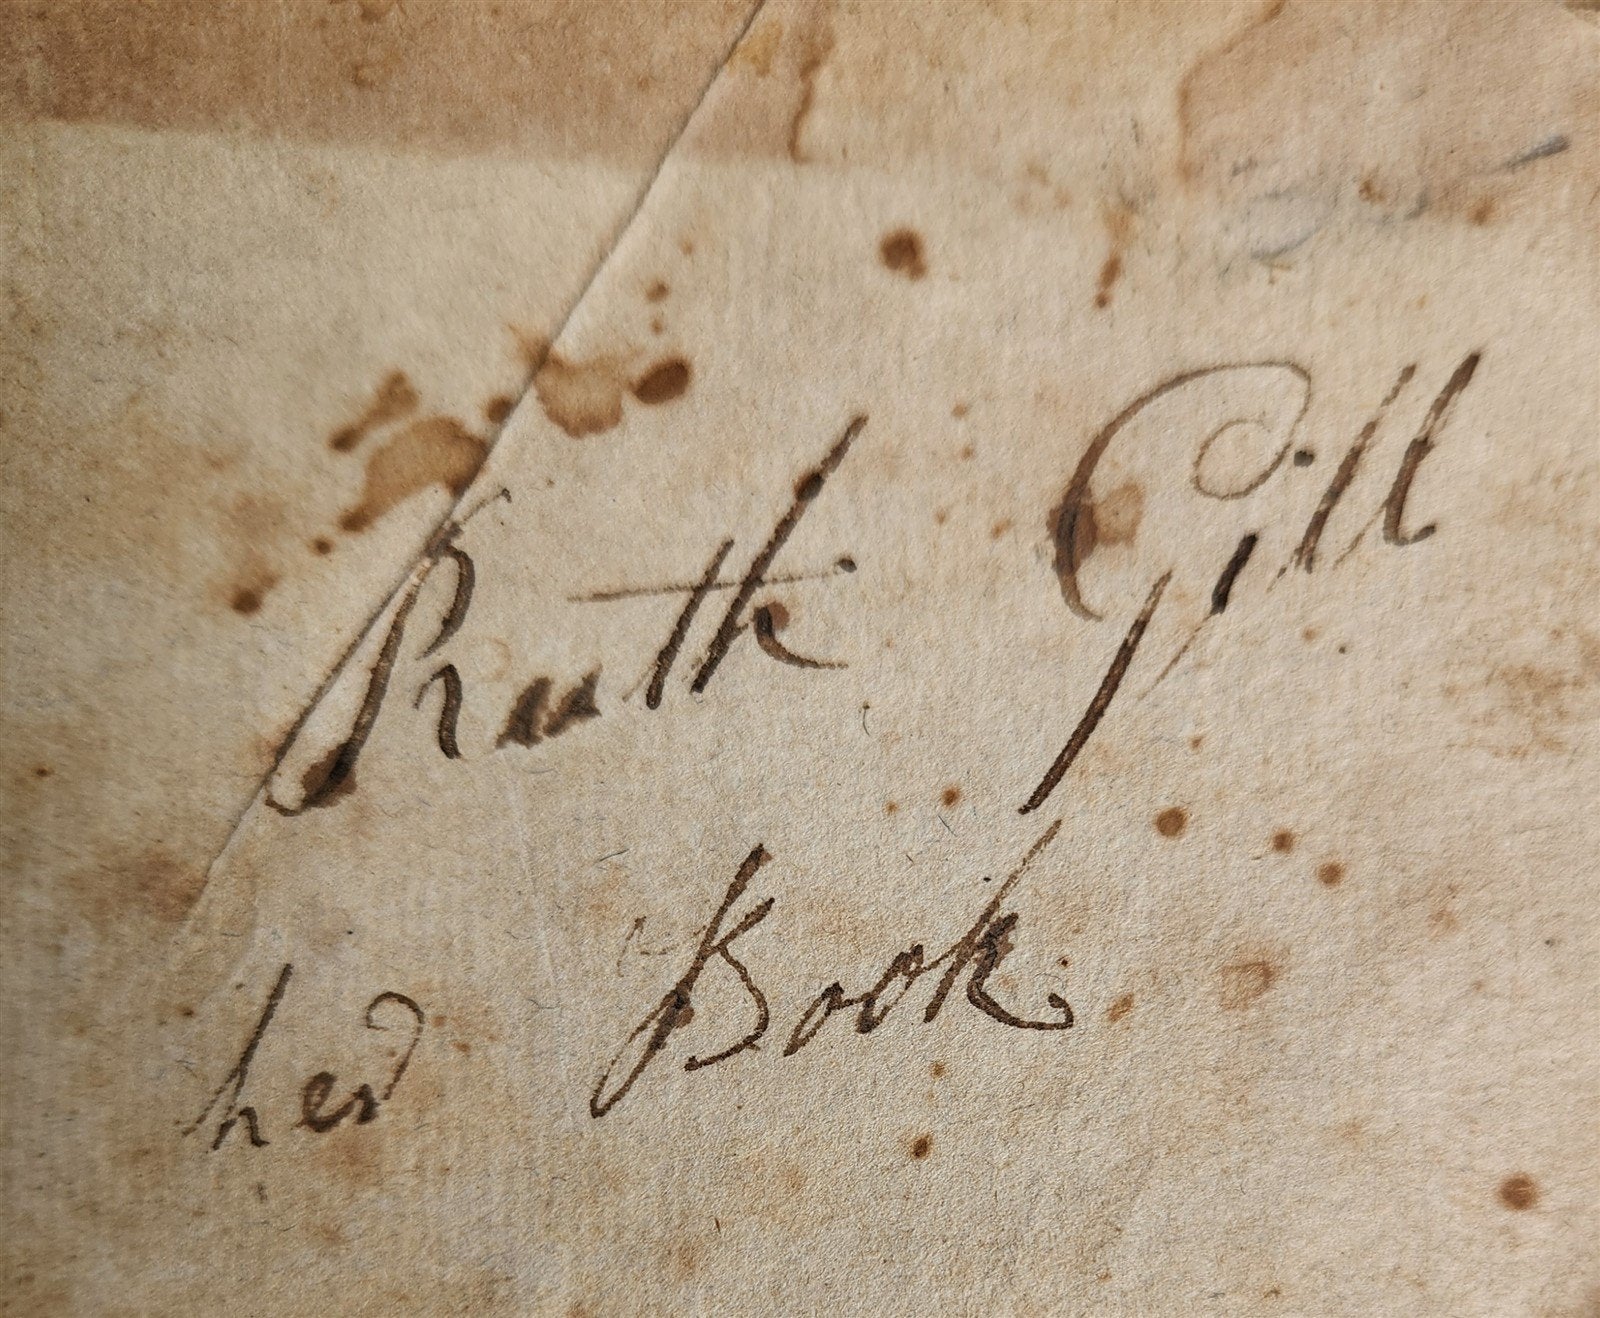 Ruth Gill
her Book